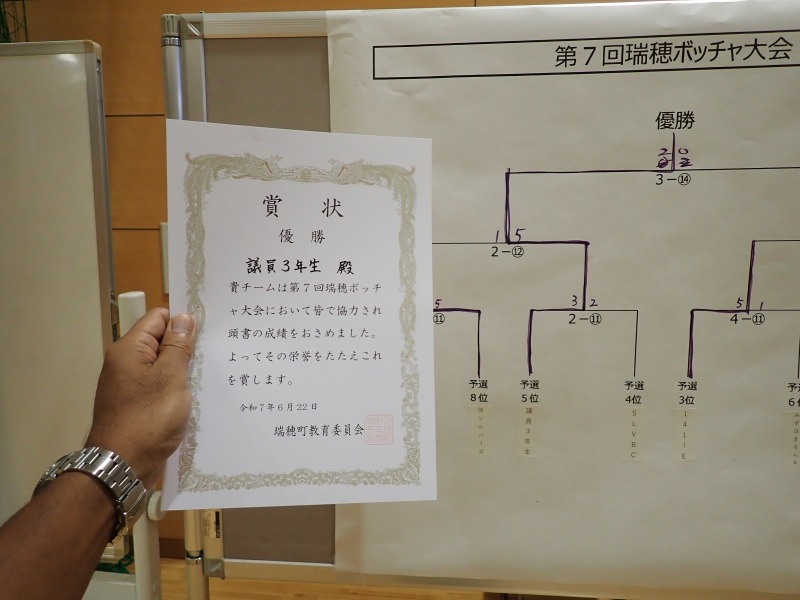 賞　状
優　勝
議員3年生　殿
貴チームは第７回瑞穂ボッチ
ャ大会において皆で協力され
頭書の成績をおさめました。
よってその栄誉をたたえこれ
を賞します。
令和７年６月２２日
瑞穂町教育委員会
第７回瑞穂ボッチャ大会
優勝
3－⑭
1 5
2－⑫
5
⑪
3 2
2－⑪
5 1
4－⑪
予選
8位
予選
5位
議員3年生
予選
4位
SLVBC
予選
3位
141E
予選